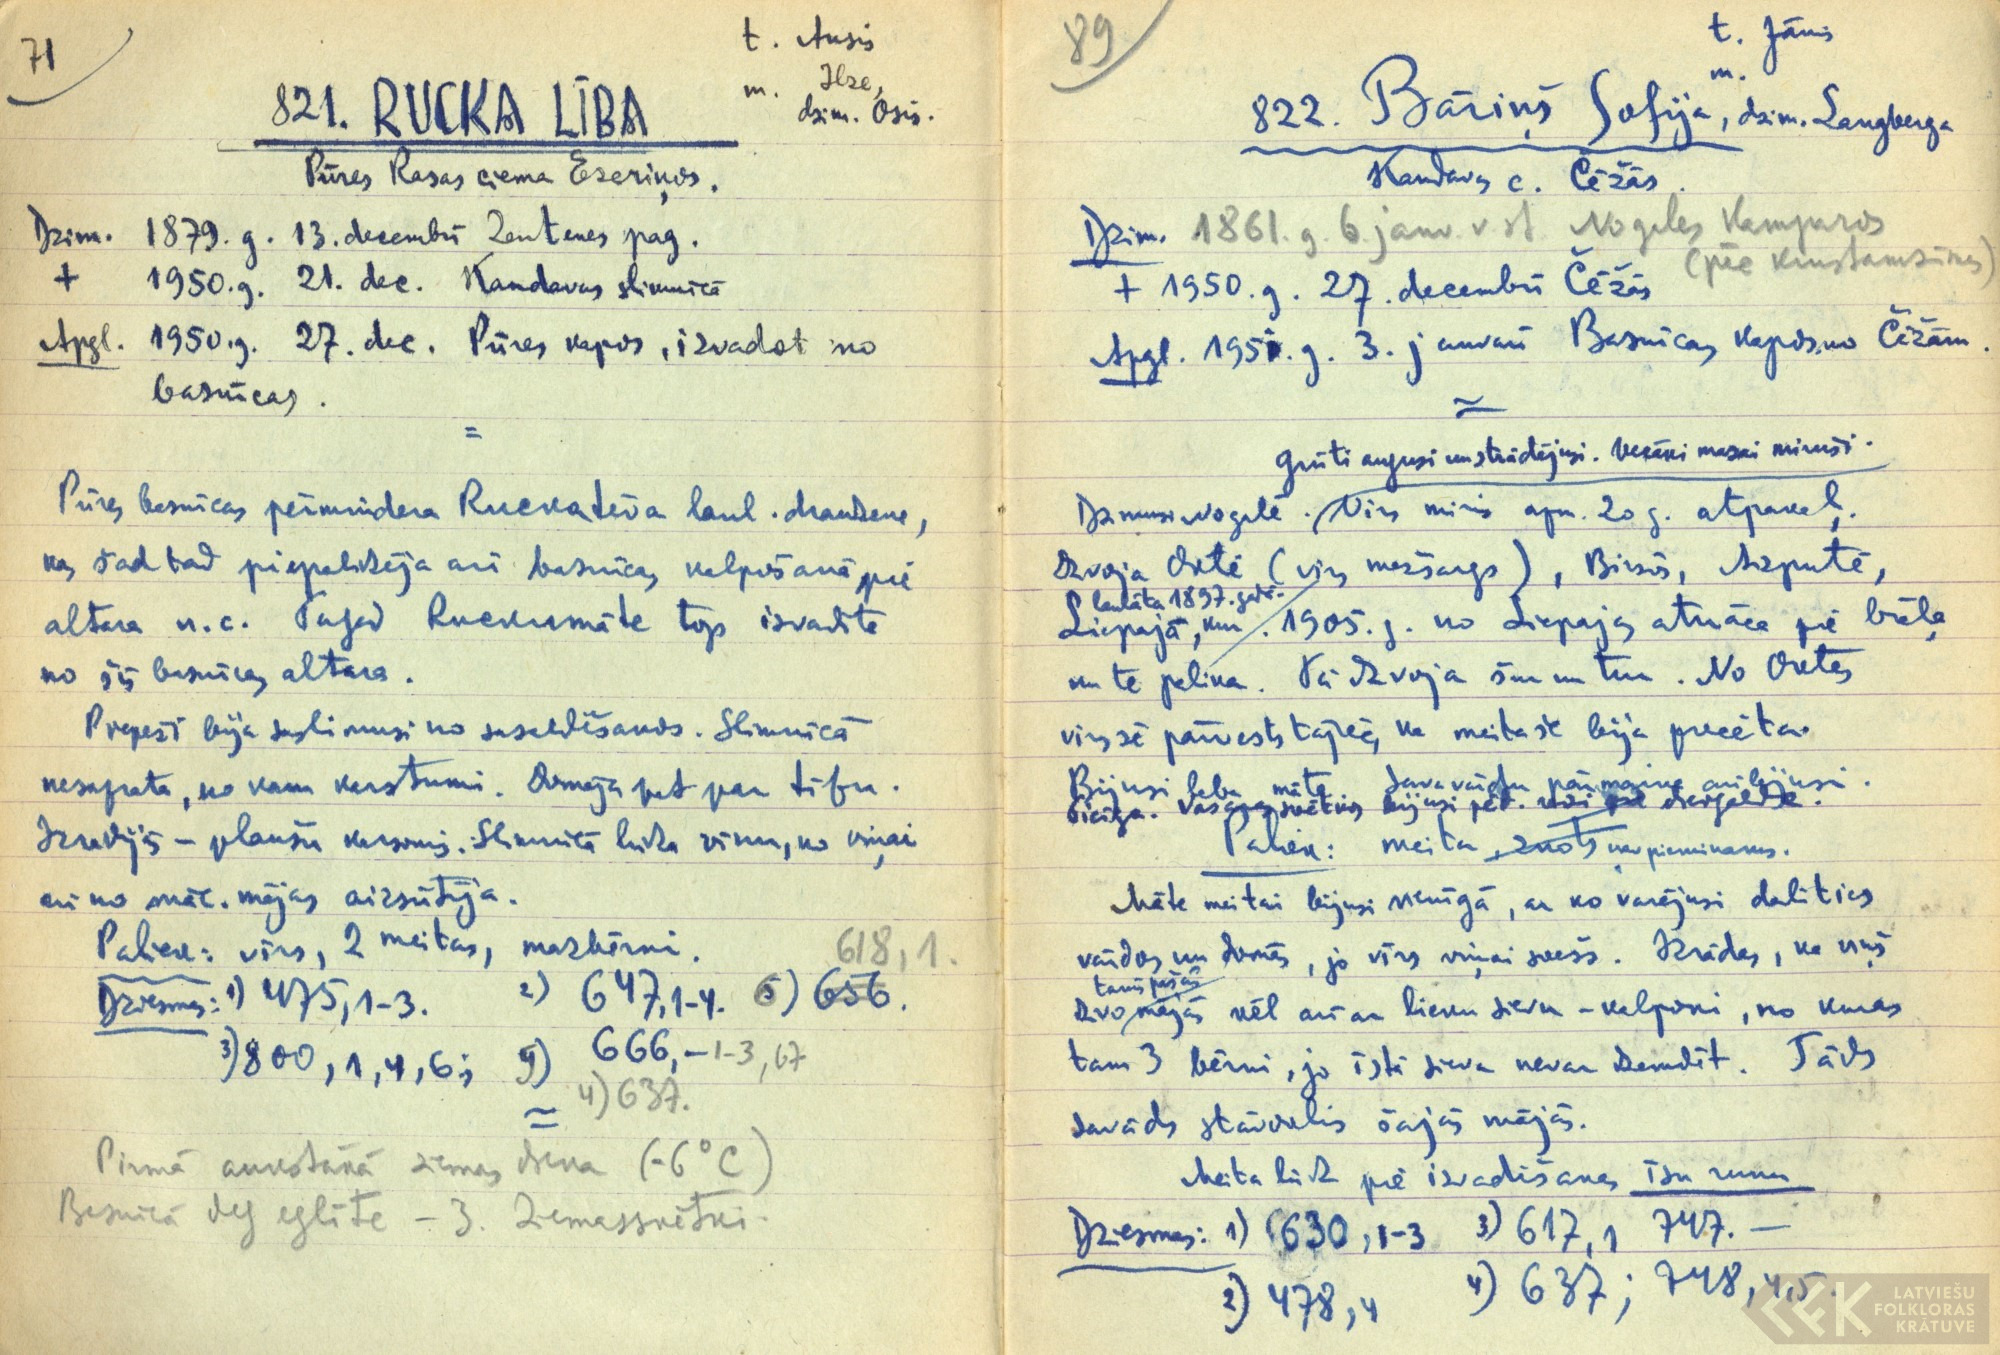 71
t. Ansis
m. Ilze,
dzim. Osis.
821. RUCKA LĪBA
Pūres Rasas ciema Ezeriņos.
Dzim. 1879. g. 13. decembrī Zentenes pag.
+ 1950. g. 21. dec. Kandavas slimnīcā
Apgl. 1950. g. 27. dec. Pūres kapos, izvadot no
baznīcas.
=
Pūres baznīcas pērmindera Ruckatēva laul. draudzene,
kas šad tad piepalīdzēja arī baznīcas kalpošanā pie
altara u.c. Tagad Ruckumāte top izvadīta
no šīs baznīcas altara.
Piepeši bija saslimusi no saaukstēšanās. Slimnīcā
nesaprata, no kam karstumi. Domāja pat par tīfu.
Izrādījās – plaušu karsonis. Slimnīcā lūdza vīnu, ko viņai
arī no māc. mājas aizsūtīja.
Paliek: vīrs, 2 meitas, mazbērni.
618, 1.
Dziesmas: 1) 475, 1-3. 2) 647, 1-4. 5) 656.
3) 800, 1, 4, 6; 5) 666, – 1-3, 67
4) 637.
Pirmā aukstākā ziemas diena (-6°C)
Baznīcā deg eglīte – 3. Ziemassvētki.
89
t. Jānis
m.
822. Bāriņš Sofija, dzim. Langberga
Kandavas c. Čēžās.
Dzim. 1861. g. 6. janv. v. st. Nogales Kamparos
(pēc krustamzīmes)
+ 1950. g. 27. decembrī Čēžās
Apgl. 1951. g. 3. janvarī Baznīcas kapos, no Čēžām.
Grūti augusi un strādājusi. Vecāki mazai miruši.
Dzimusi Nogalē. Vīrs miris apm. 20 g. atpakaļ.
Dzīvoja Oktē (vīrs mežsargs), Birzīs, Aizputē,
laulāta 1897. gadā.
Liepājā, kur 1905. g. no Liepājas atnāca pie brāļa
un te palika. Tā dzīvoja šur un tur. No Oktes
vīrs šē pārvests tāpēc, ka meita šē bija precēta.
Bijusi laba māte. Sava vārdu pārmaiņa arī bijusi.
ticīga. Vasaras svētkos bijusi pēd. reizi pie dievgalda.
Paliek: meita, znots nav pieminams.
Māte meitai bijusi vienīgā, ar ko varējusi dalīties
vārdos un domās, jo vīrs viņai svešs. Izrādas, ka viņš
tanīs pašās
dzīvo mājās vēl arī ar lieku sievu – kalponi, no kuras
tam 3 bērni, jo īstā sieva nevar dzemdēt. Tāds
savāds stāvoklis šajās mājās.
Meita lūdz pie izvadīšanas īsu runu
Dziesmas: 1) 630, 1-3 3) 617, 1 747. –
2) 478, 4 4) 637; 748, 4, 5.
LATVIEŠU
FOLKLORAS
KRĀTUVE